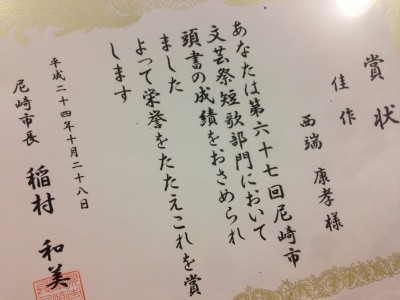 賞状
佳作
西端 康孝 様
あなたは第六十七回尼崎市
文芸祭短歌部門において
頭書の成績をおさめられ
ました
よって栄誉をたたえこれを賞
します
平成二十四年十月二十八日
尼崎市長 稲村 和美